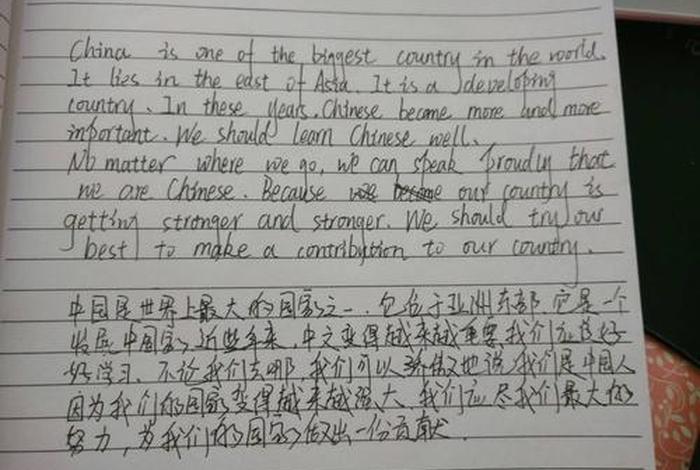 China is one of the biggest country in the world.
It lies in the east of Asia. It is a developing
country. In these years. Chinese become more and more
important. We should learn Chinese well.
No matter where we go, we can speak proudly that
we are Chinese. Because our country is
getting stronger and stronger. We should try our
best to make a contribution to our country.
中国是世界上最大的国家之一.它位于亚洲东部.它是一个
发展中国家.近些年来.中文变得越来越重要.我们应该好
好学习.不论我们去哪.我们可以骄傲地说:我们是中国人
因为我们的国家变得越来越强大.我们应尽我们最大的
努力,为我们的国家做出一份贡献.